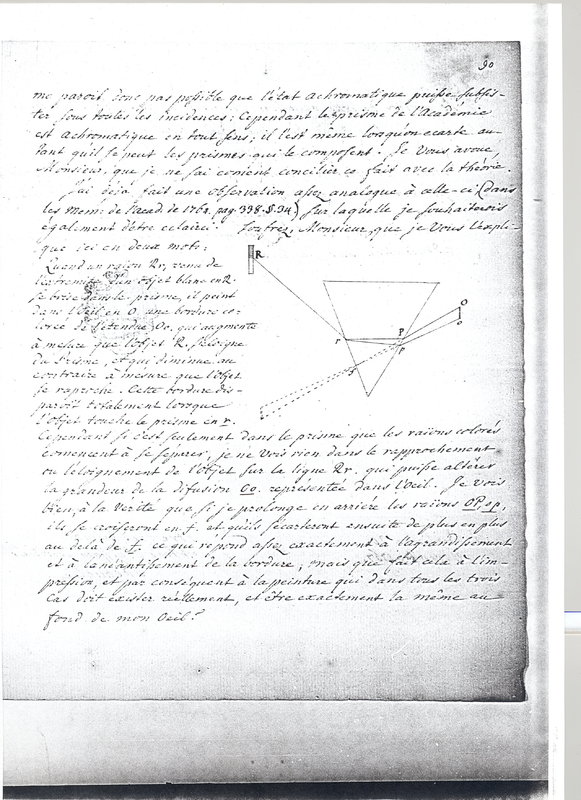 90
me paroit donc pas possible que l'état achromatique puisse subsis-
ter sous toutes les incidences: Cependant le prisme de l'Académie
est achromatique en tout sens, il l'est même lorsqu'on ecarte au-
tant qu'il se peut les prismes qui le composent. Je Vous avoue,
Monsieur, que je ne sai coment concilier ce fait avec la théorie.
J'ai déjà fait une observation assez analogue à celle-ci (dans
les Mem: de l'acad. de 1762. pag. 338. §. 34) sur laquelle je souhaiterois
également d'etre eclairé. Soufrez, Monsieur, que je Vous l'expli-
que ici en deux mots:
Quand un raion Rr, venu de
l'extremité d'un objet blanc en R.
se brise dans le prisme, il peint
dans l'Oeil en O. une bordure co-
lorée de l'étendue Oo. qui augmente
à mesure que l'objet R. s'eloigne
du Prisme, et qui diminue au
contraire à mesure que l'objet
se raproche. Cette bordure dis-
paroit totalement lorsque
l'objet touche le prisme en r.
R
r
P
p
O
o
Cependant si c'est seulement dans le prisme que les raions colorés
comencent à se séparer, je ne vois rien dans le rapprochement
ou l'eloignement de l'Objet sur la ligne Rr. qui puisse altérer
la grandeur de la difusion Oo. représentée dans l'Oeil. Je vois
bien, à la Verité que si je prolonge en arriere les raions OP, op,
ils se croiseront en f. et qu'ils s'ecarteront ensuite de plus en plus
au delà de f. ce qui répond assez exactement à l'agrandissement
et à l'anéantissement de la bordure; mais que fait cela à l'im-
pression, et par conséquent à la peinture qui dans tous les trois
cas doit exister réellement, et être exactement la même au
fond de mon Oeil?